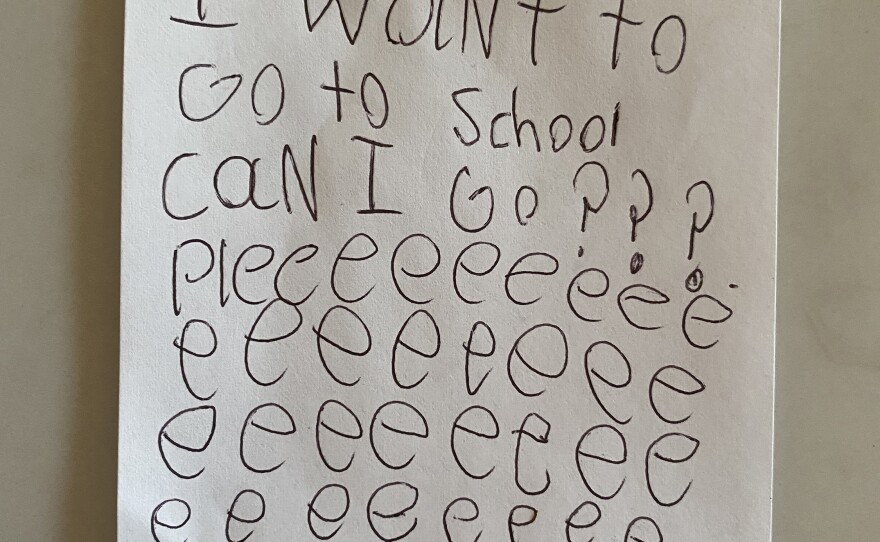 I WaNT to
GO to School
CaN I Go ? ? ?
Pleeeeeeeee
e e e e e e e e
e e e e e e e e
e e e e e e e e